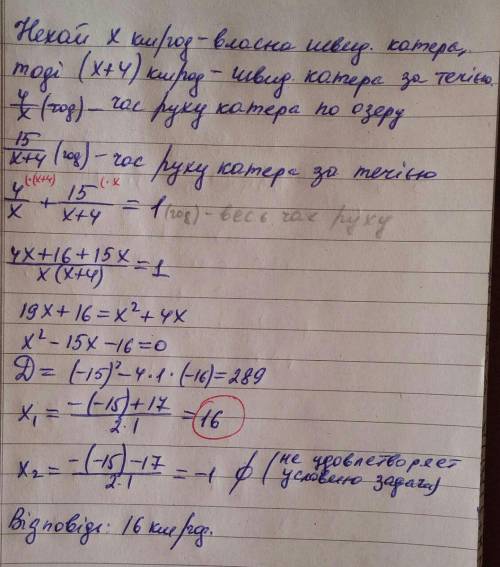 Нехай x км/год - власна швид. катера,
тоді (x+4) км/год - швид. катера за течією.
4/x (год) - час руху катера по озеру
15/(x+4) (год) - час руху катера за течією
4/x (·(x+4) + 15/(x+4) (·x = 1 (год) - весь час руху
(4x+16+15x)/(x(x+4)) = 1
19x+16 = x²+4x
x²-15x-16=0
Д = (-15)²-4·1·(-16)=289
x₁ = (-(-15)+17)/(2·1) = 16
x₂ = (-(-15)-17)/(2·1) = -1 ∅ (не удовлетворяет
условию задачи)
Відповідь: 16 км/год.